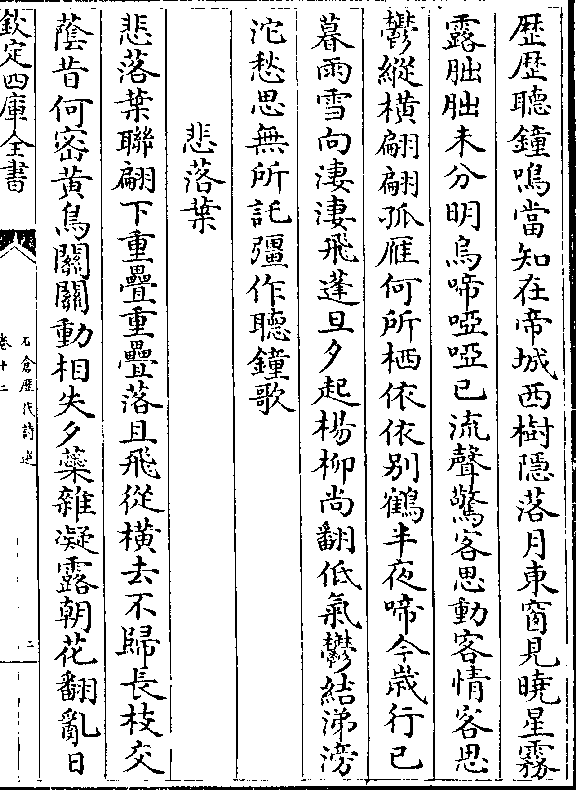 歴歴聽鐘鳴當知在帝城西樹隱落月東窗見曉星霧
露朏朏未分明烏啼啞啞已流聲驚客思動客情客思
鬱縱橫翩翩孤雁何所栖依依别鶴半夜啼今歲行已
暮雨雪向淒淒飛蓬旦夕起楊柳尚翻低氣鬱結涕滂
沱愁思無所託彊作聽鐘歌
悲落葉
悲落葉聯翩下重疊重疊落且飛從橫去不歸長枝交
蔭昔何密黄鳥關關動相失夕蘂雜凝露朝花翻亂日
欽定四庫全書
石倉歴代詩選
卷十二
二